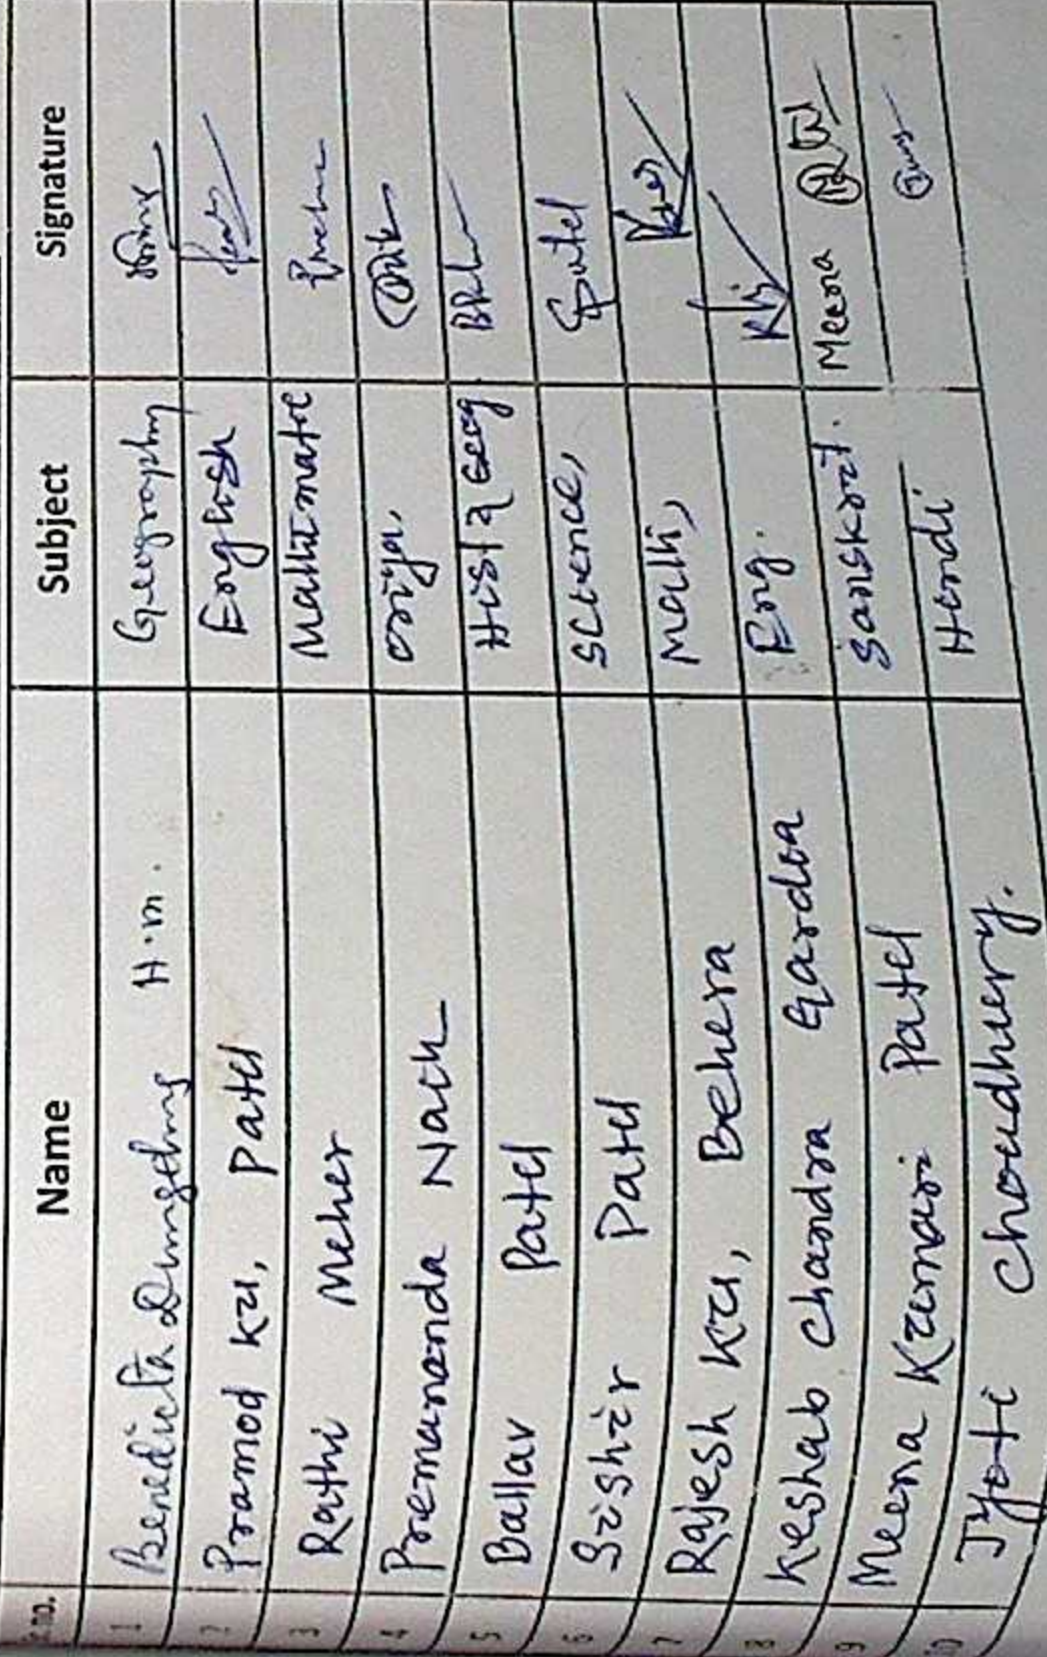 S.no. Name Subject Signature
1 Benedicta Dungdung H.m. Geography
2 Pramod Ku, Patel English
3 Rathi Meher Mathematic
4 Premananda Nath oriya,
5 Ballav Patel Hist & Geog
6 Sishir Patel Science, Spatel
7 Rajesh Ku, Behera Math,
8 Keshab Chandra Gardia Eng.
9 Meena Kumari Patel Sanskrit. Meena
10 Jyoti Choudhury. Hindi